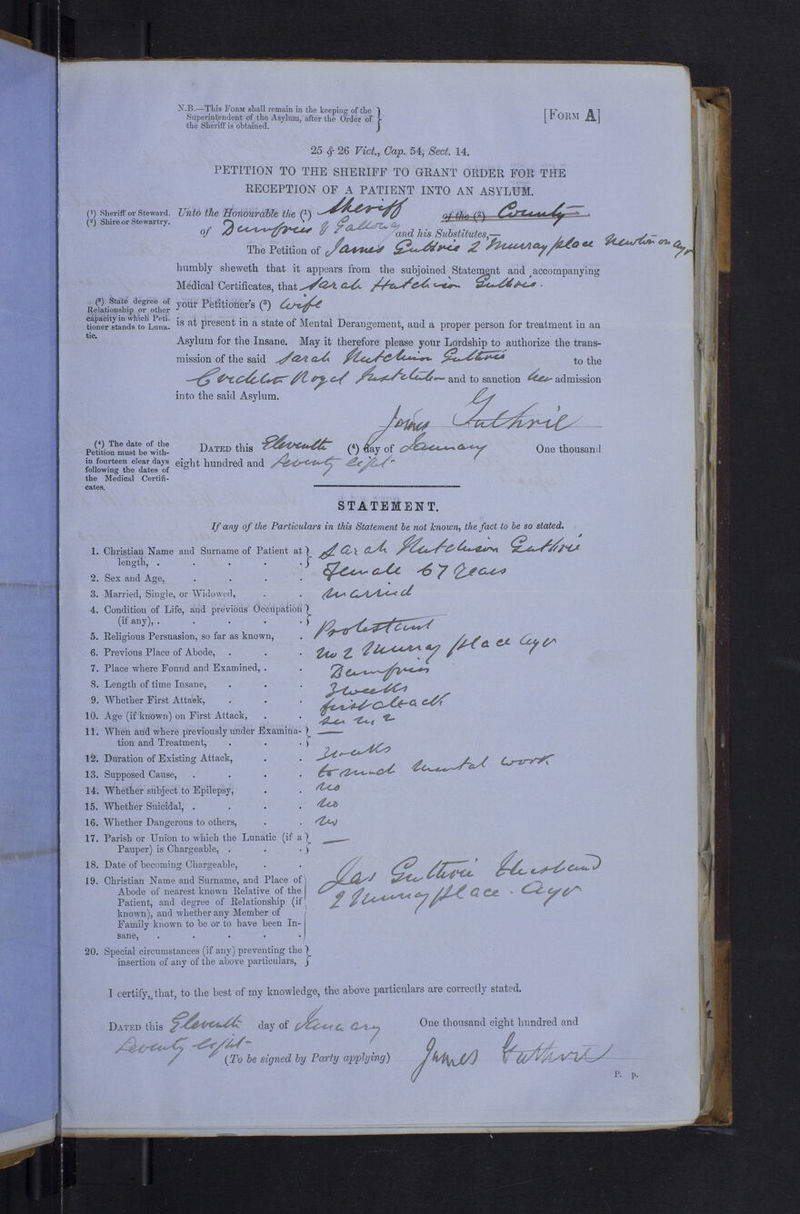 N.B.—This Form shall remain in the keeping of the
Superintendent of the Asylum, after the Order of
the Sheriff is obtained.
[Form A]
25 & 26 Vict., Cap. 54, Sect. 14.
PETITION TO THE SHERIFF TO GRANT ORDER FOR THE
RECEPTION OF A PATIENT INTO AN ASYLUM.
(1) Sheriff or Steward.
(2) Shire or Stewartry.
Unto the Honourable the (1) Sheriff of the (2) County
of Dumfries & Galloway and his Substitutes,—
The Petition of James Guthrie 2 Murray place Newton on Ayr
humbly sheweth that it appears from the subjoined Statement and accompanying
Medical Certificates, that Sarah Hutchison Guthrie
(3) State degree of
Relationship or other
capacity in which Peti-
tioner stands to Luna-
tic.
your Petitioner's (3) Wife
is at present in a state of Mental Derangement, and a proper person for treatment in an
Asylum for the Insane. May it therefore please your Lordship to authorize the trans-
mission of the said Sarah Hutchison Guthrie to the
Crichton Royal Institution and to sanction her admission
into the said Asylum.
James Guthrie
(4) The date of the
Petition must be with-
in fourteen clear days
following the dates of
the Medical Certifi-
cates.
Dated this Eleventh (4) day of January One thousand
eight hundred and seventy eight
STATEMENT.
If any of the Particulars in this Statement be not known, the fact to be so stated.
1. Christian Name and Surname of Patient at
length, . Sarah Hutchison Guthrie
2. Sex and Age, Female 67 Years
3. Married, Single, or Widowed, Married
4. Condition of Life, and previous Occupation
(if any), .
5. Religious Persuasion, so far as known, Protestant
6. Previous Place of Abode, No 2 Murray place Ayr
7. Place where Found and Examined, . Dumfries
8. Length of time Insane, 3 weeks
9. Whether First Attack, first attack
10. Age (if known) on First Attack, see No 2
11. When and where previously under Examina-
tion and Treatment, —
12. Duration of Existing Attack, 3 weeks
13. Supposed Cause, to much mental work
14. Whether subject to Epilepsy, No
15. Whether Suicidal, . No
16. Whether Dangerous to others, No
17. Parish or Union to which the Lunatic (if a
Pauper) is Chargeable, . —
18. Date of becoming Chargeable,
19. Christian Name and Surname, and Place of
Abode of nearest known Relative of the
Patient, and degree of Relationship (if
known), and whether any Member of
Family known to be or to have been In-
sane, .
Jas Guthrie Husband
2 Murray place . Ayr
20. Special circumstances (if any) preventing the
insertion of any of the above particulars,
I certify, that, to the best of my knowledge, the above particulars are correctly stated.
Dated this Eleventh day of January One thousand eight hundred and
Seventy eight
(To be signed by Party applying) James Guthrie
P. p.